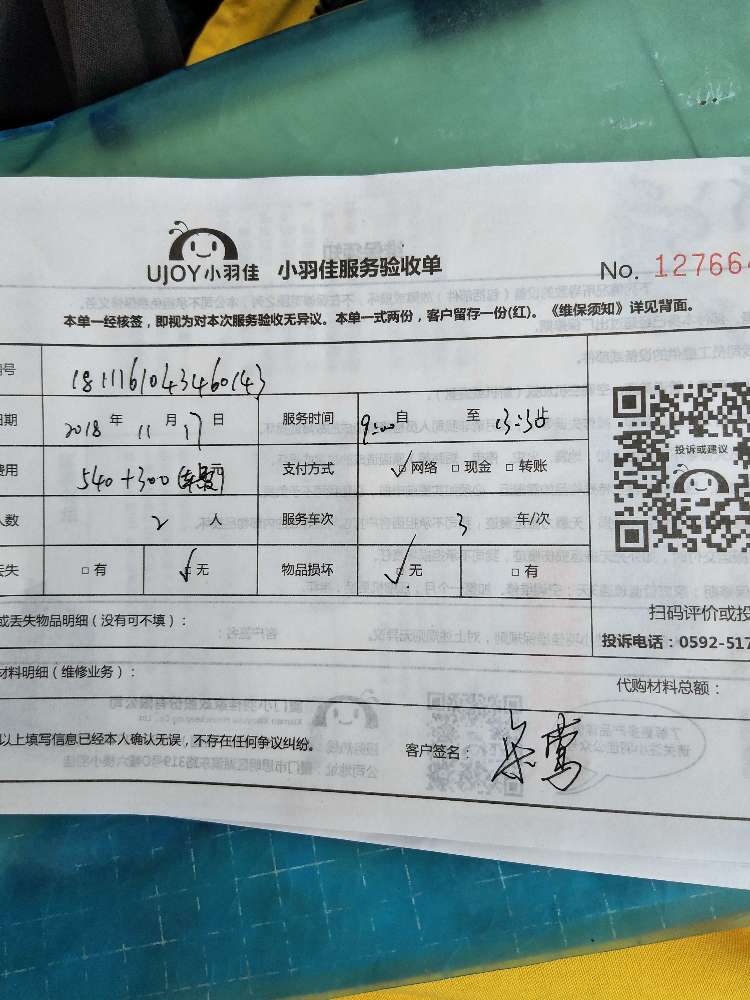 UJOY小羽佳 小羽佳服务验收单 No. 127664
本单一经核签，即视为对本次服务验收无异议。本单一式两份，客户留存一份(红)。《维保须知》详见背面。
号 1811161043460143
期 2018 年 11 月 17 日 服务时间 9:00 自 至 13:30
费用 540+300 支付方式 ✓□网络 □现金 □转账
人数 2 人 服务车次 3 车/次
丢失 □有 ✓□无 物品损坏 ✓□无 □有
投诉或建议
或丢失物品明细（没有可不填）：
扫码评价或投
投诉电话：0592-517
材料明细（维修业务）：
代购材料总额：
以上填写信息已经本人确认无误，不存在任何争议纠纷。 客户签名：